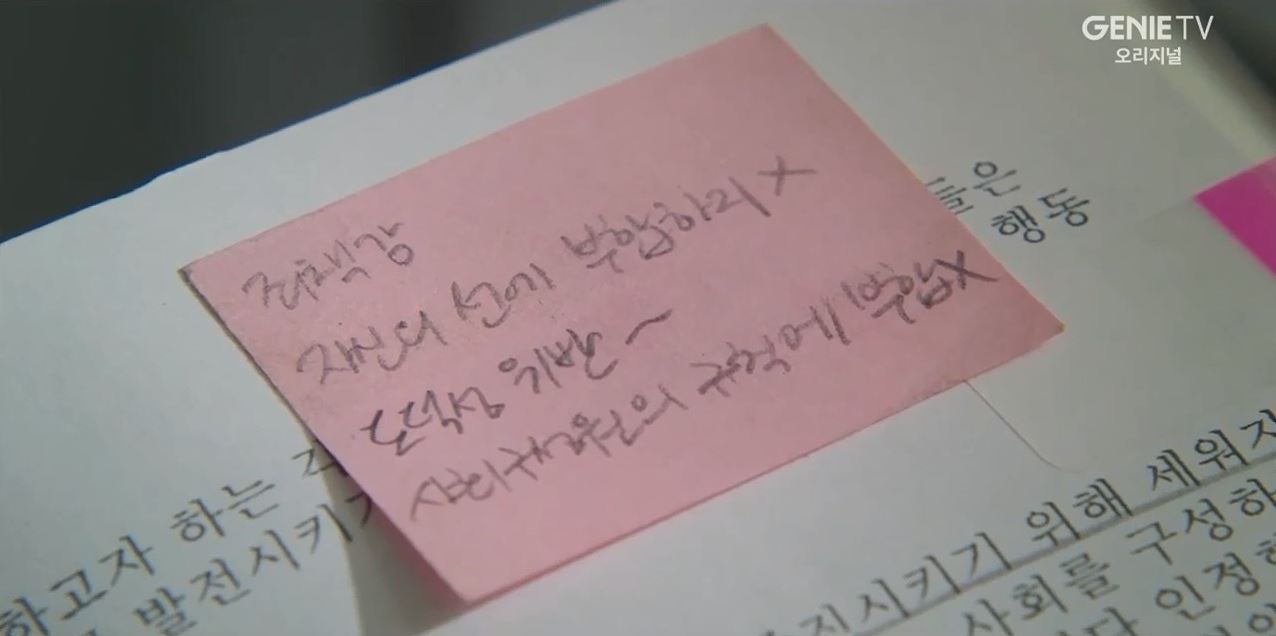 GENIE TV
오리지널
죄책감
자신의 선에 부합하지 X
도덕성 위반~
사회구성원의 규칙에 부합X
들은
행동
하고자 하는
발전시키기
지시키기 위해 세워지
사회를 구성하
다 인정하